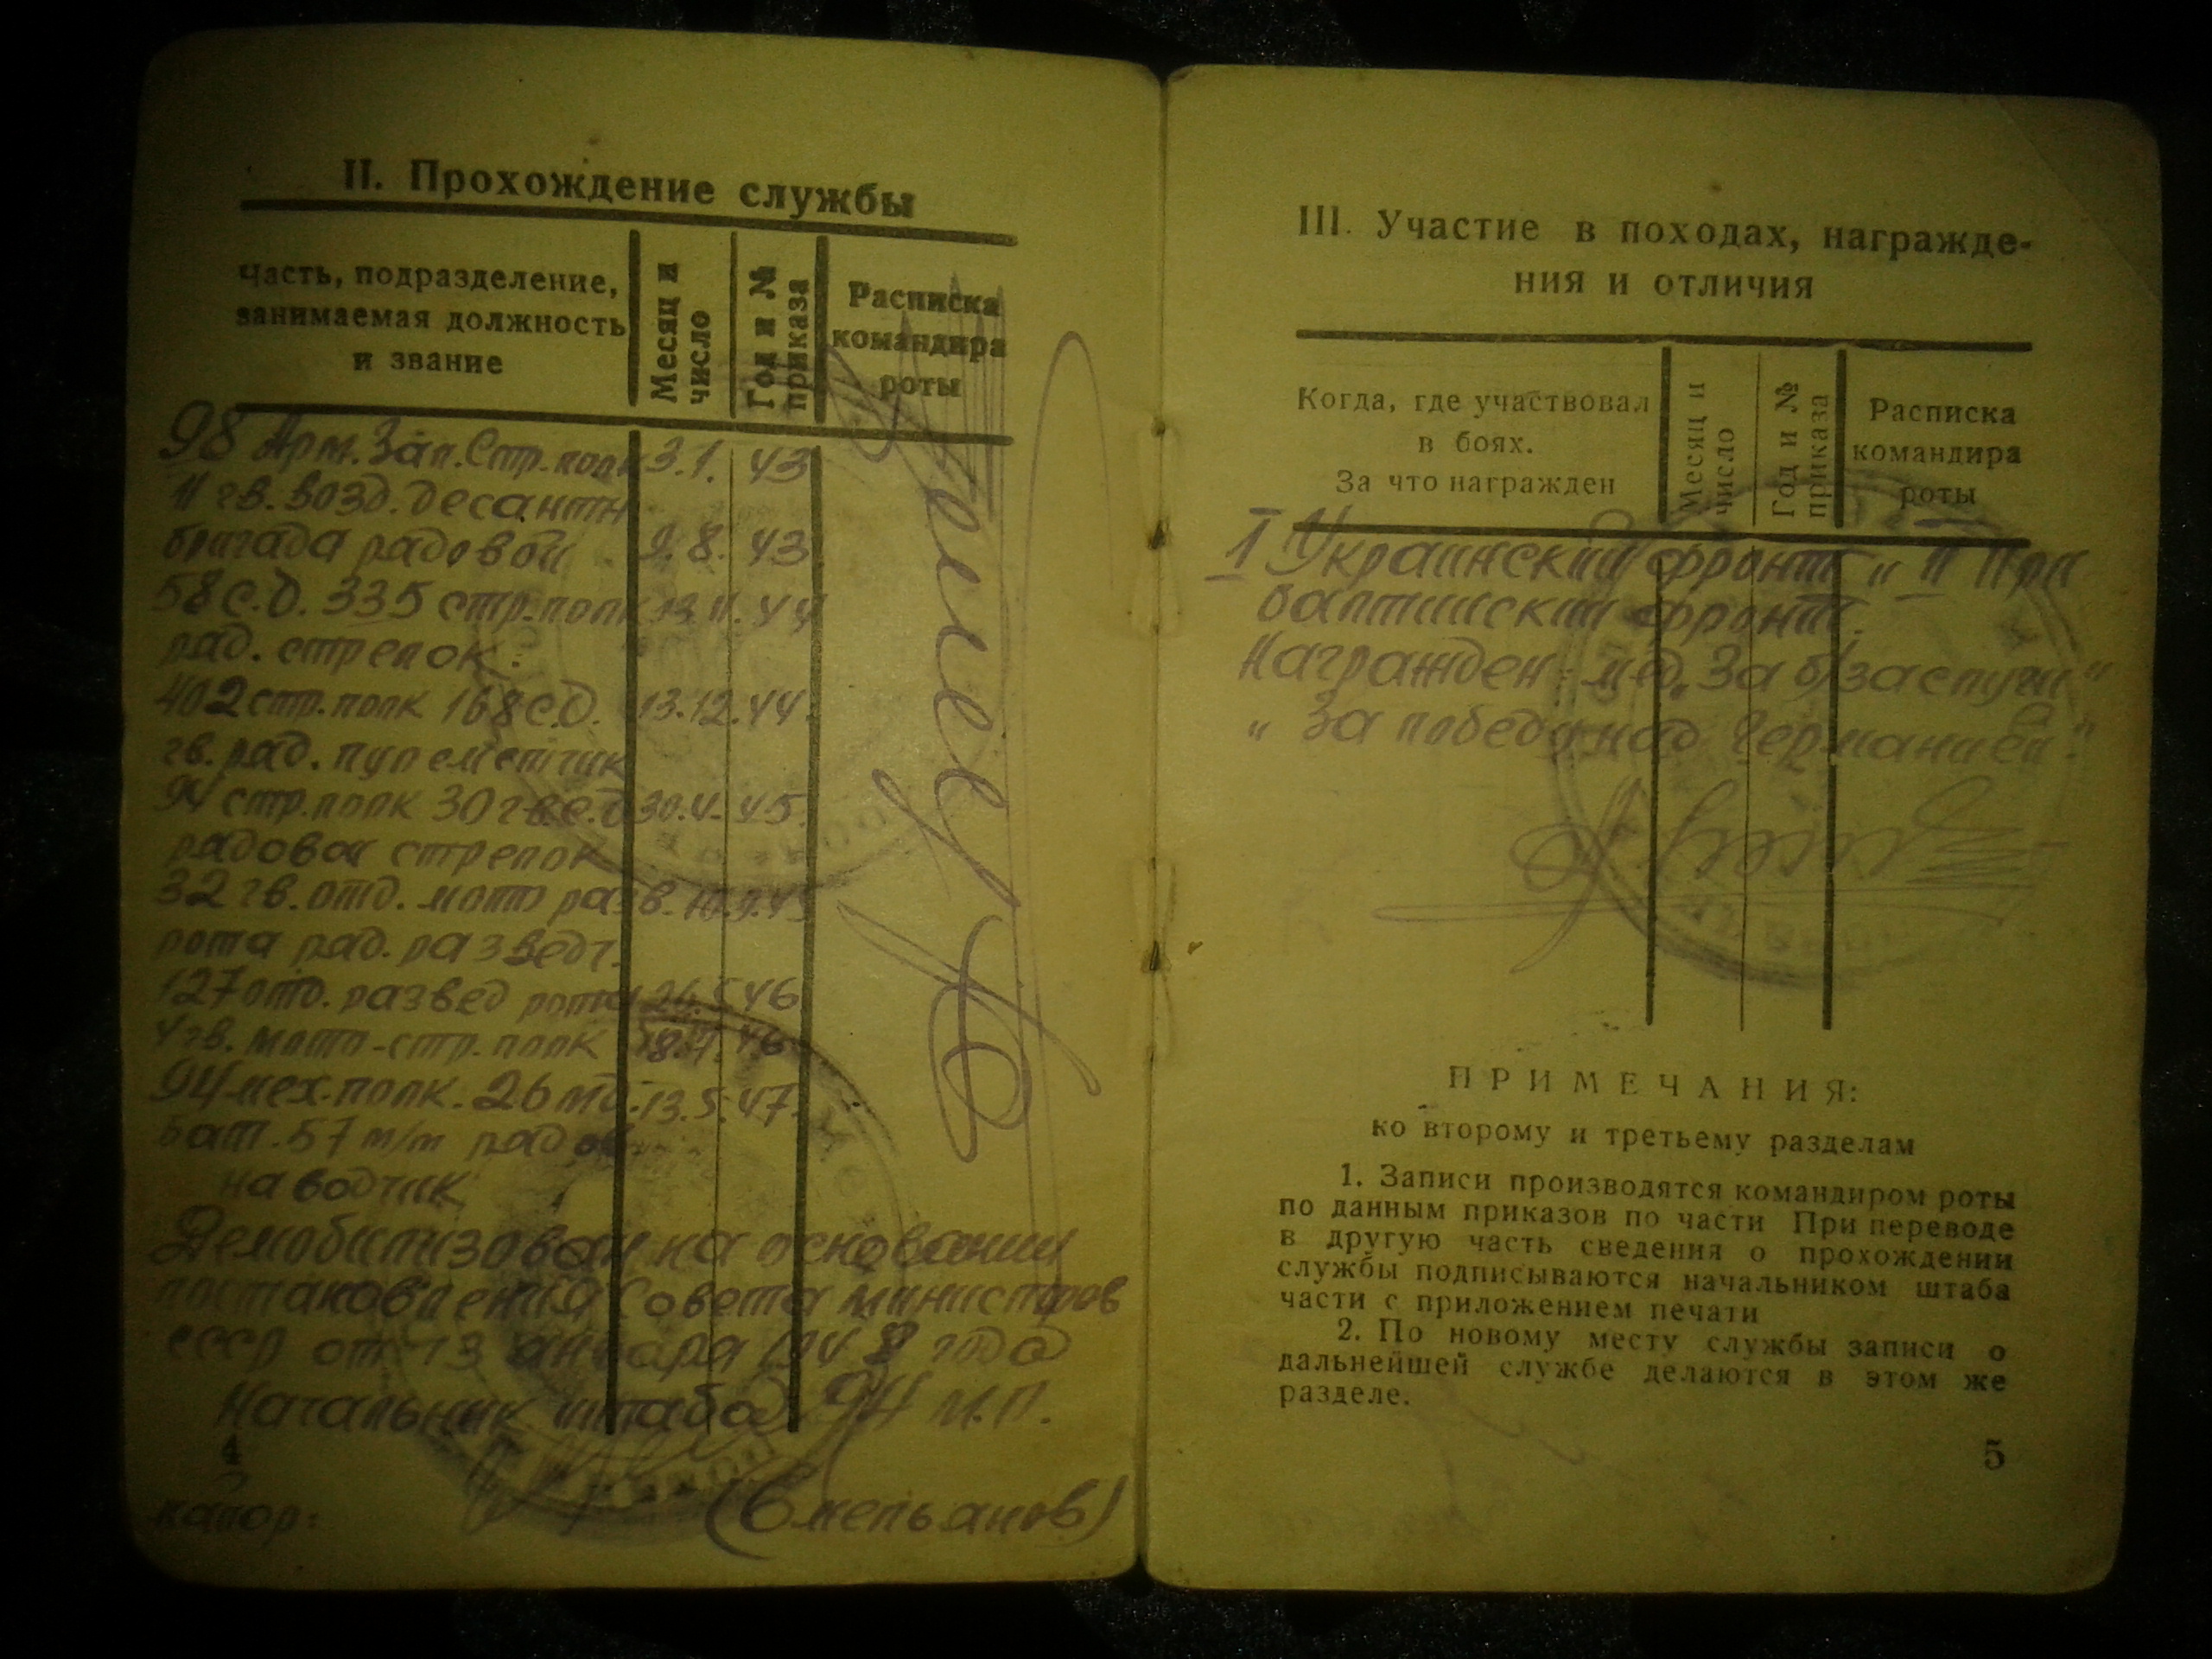 II. Прохождение службы
Часть, подразделение,
занимаемая должность
и звание
Месяц и
число
Год и №
приказа
Расписка
командира
роты
98 Арм. Зап. Стр. полк 3.1. 43
11 гв. возд. десантн
бригада радовой 9.8. 43
58 с.д. 335 стр. полк 13.11.44
рад. стрелок.
402 стр. полк 168 с.д. 13.12.44.
гв. рад. пулеметчик
94 стр. полк 30 гв с.д 30.4.45.
радовой стрелок
32 гв. отд. мото разв.
рота рад. разведч.
127 отд. развед рота 26.5.46
4 гв. мото-стр. полк 46
94 мех. полк. 26 мд. 13.5.47.
бат. 57 м/м радов.
наводчик
Демобилизован на основании
постановления Совета министров
СССР от 13 января 1948 года
Начальник штаба 94 М.П.
4
(Емельянов)
III. Участие в походах, награжде-
ния и отличия
Когда, где участвовал
в боях.
За что награжден
Месяц и
число
Год и №
приказа
Расписка
командира
роты
I Украинский фронт и II При
балтийский фронт.
Награжден: мед. „За б/заслуги"
„За победу над Германией".
ПРИМЕЧАНИЯ:
ко второму и третьему разделам
1. Записи производятся командиром роты
по данным приказов по части При переводе
в другую часть сведения о прохождении
службы подписываются начальником штаба
части с приложением печати
2. По новому месту службы записи о
дальнейшей службе делаются в этом же
разделе.
5